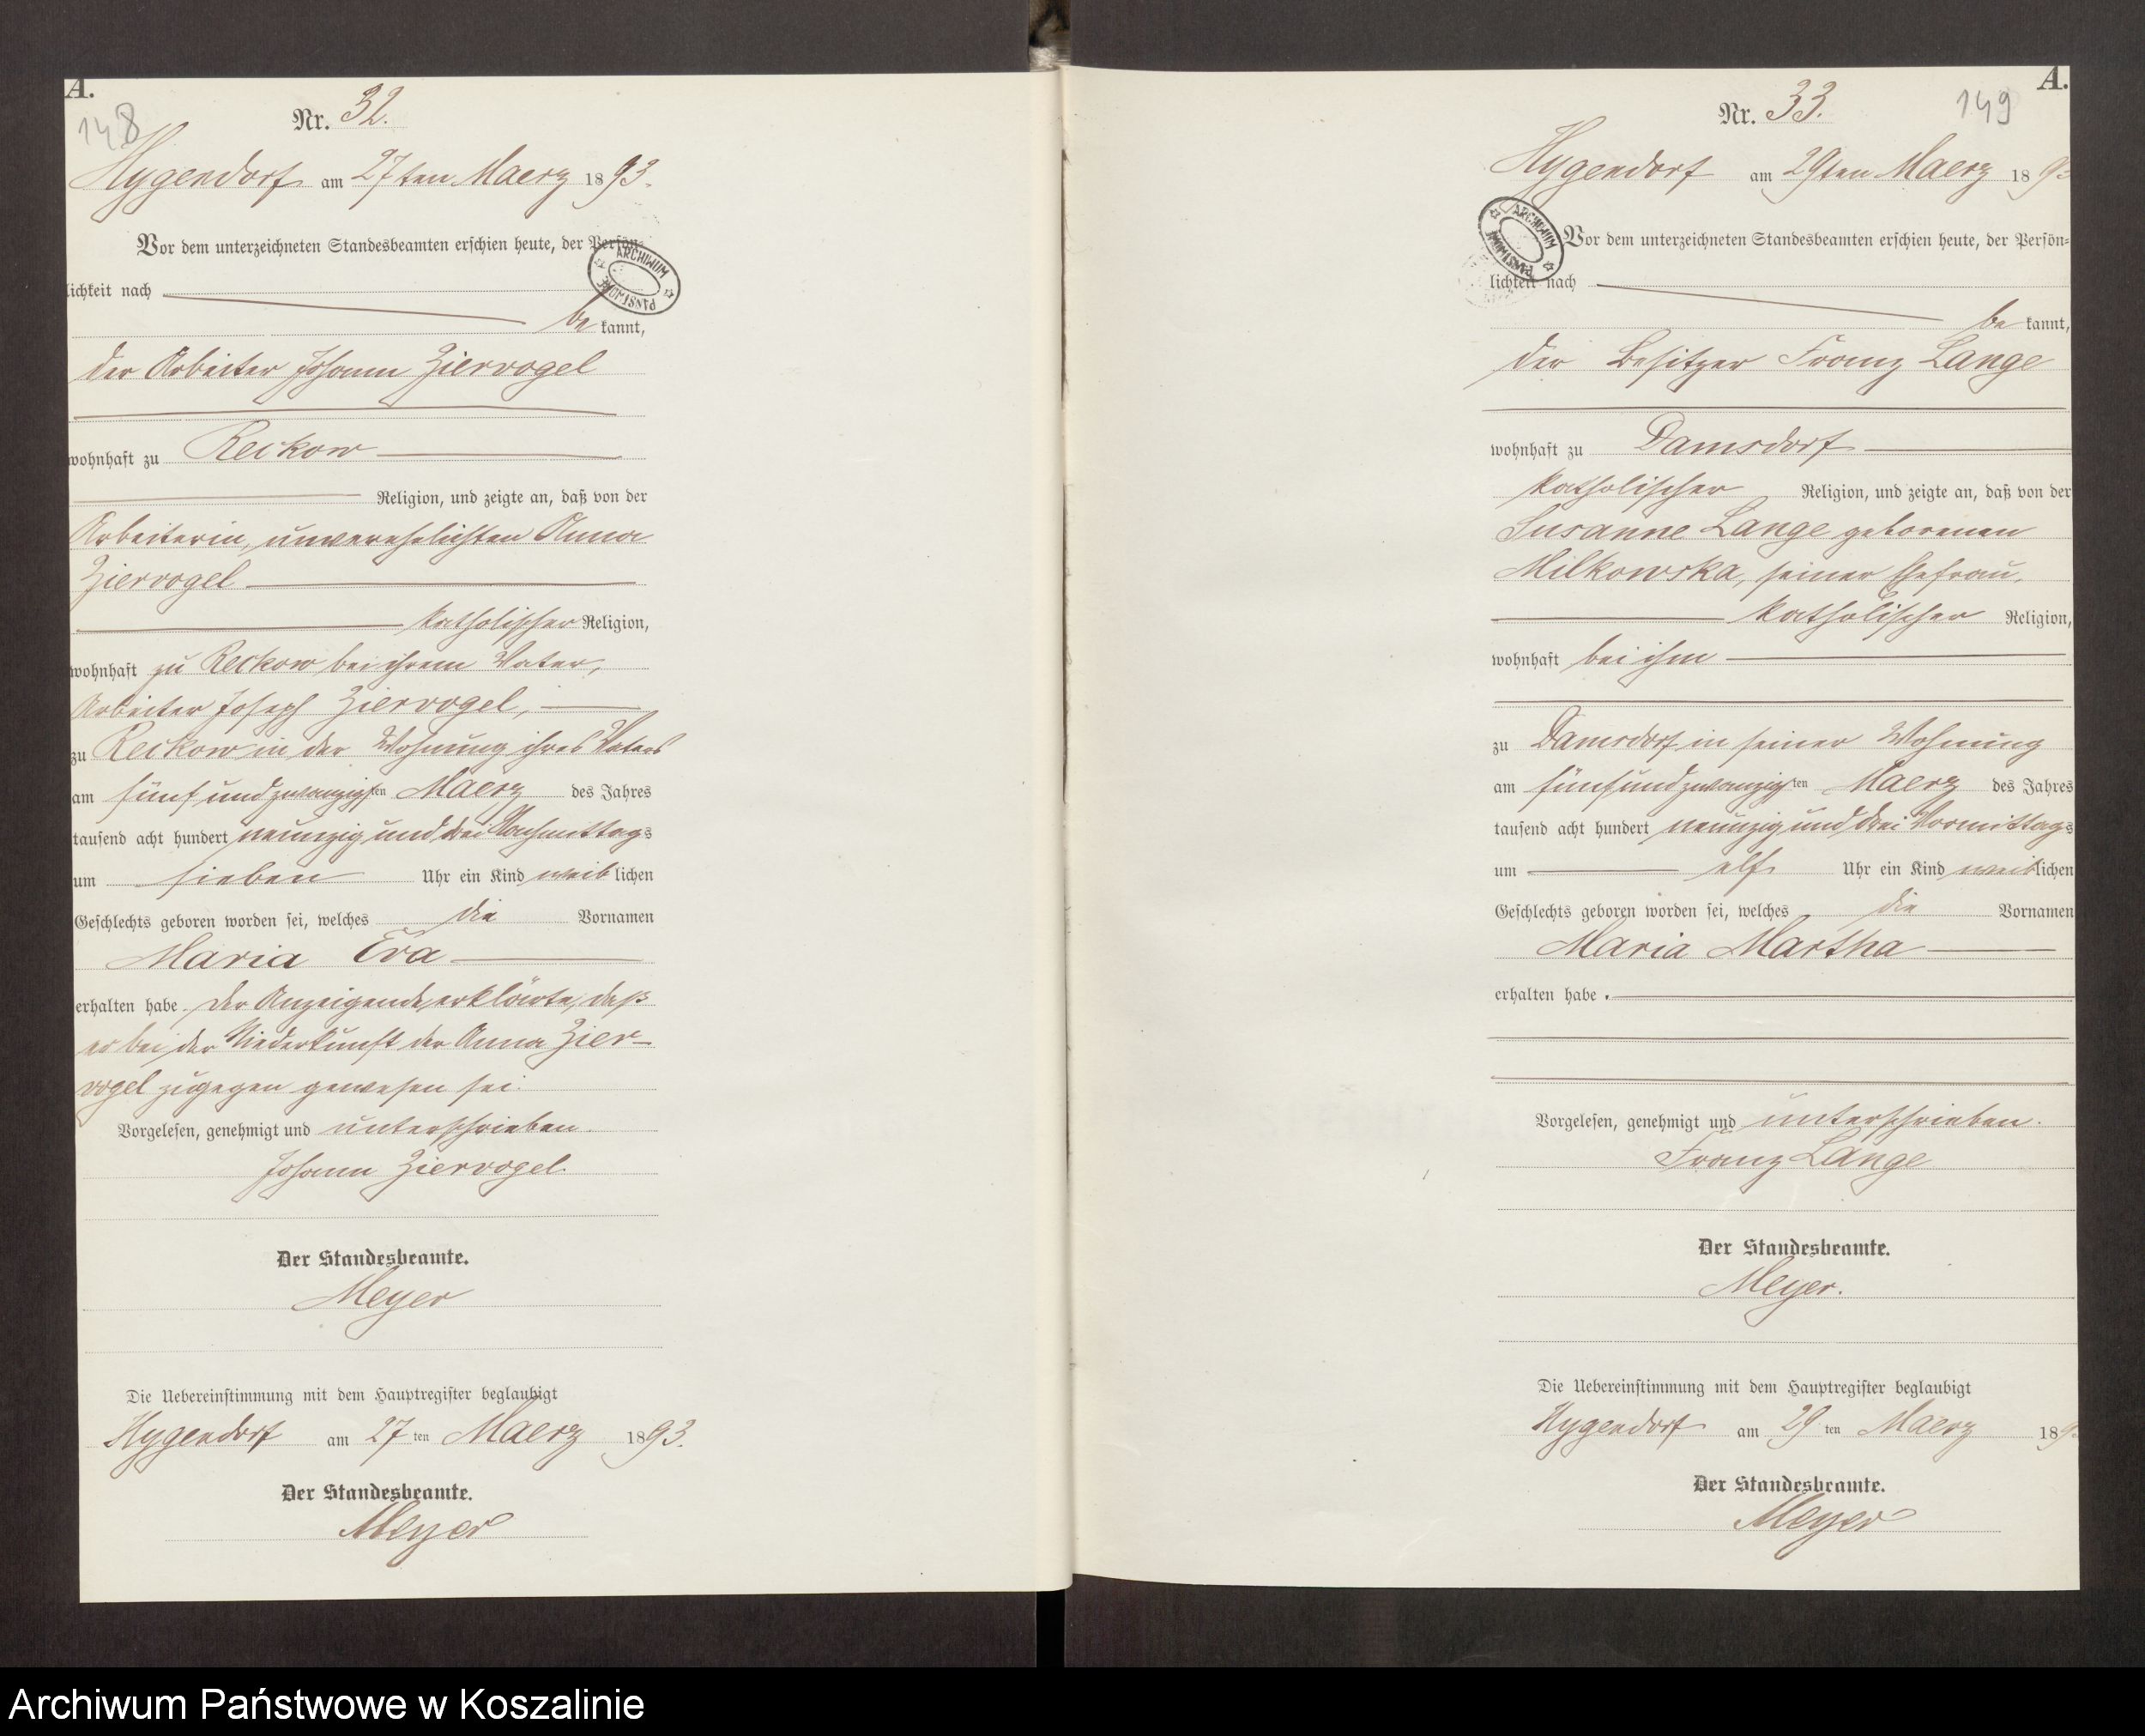 A.
148
Nr. 32.
Hygendorf am 27ten Maerz 1893.
Vor dem unterzeichneten Standesbeamten erschien heute, der Persön-
lichkeit nach
be kannt,
der Arbeiter Johann Ziervogel
wohnhaft zu Reckow
Religion, und zeigte an, daß von der
Arbeiterin, unverehelichten Anna
Ziervogel
katholischer Religion,
wohnhaft zu Reckow bei ihrem Vater,
Arbeiter Joseph Ziervogel,
zu Reckow in der Wohnung ihres Vaters
am fünfundzwanzigsten Maerz des Jahres
tausend acht hundert neunzig und drei Nachmittags
um sieben Uhr ein Kind weiblichen
Geschlechts geboren worden sei, welches die Vornamen
Maria Eva
erhalten habe. Der Anzeigende erklärte, daß
er bei der Niederkunft der Anna Zier-
vogel zugegen gewesen sei.
Vorgelesen, genehmigt und unterschrieben.
Johann Ziervogel.
Der Standesbeamte.
Meyer
Die Uebereinstimmung mit dem Hauptregister beglaubigt
Hygendorf am 27 ten Maerz 1893.
Der Standesbeamte.
Meyer
ARCHIWUM PAŃSTWOWE
A.
149
Nr. 33.
Hygendorf am 29ten Maerz 189
Vor dem unterzeichneten Standesbeamten erschien heute, der Persön-
lichkeit nach
be kannt,
der Besitzer Franz Lange
wohnhaft zu Damsdorf
katholischer Religion, und zeigte an, daß von der
Susanne Lange geborenen
Milkowska, seiner Ehefrau,
katholischer Religion,
wohnhaft bei ihm
zu Damsdorf in seiner Wohnung
am fünfundzwanzigsten Maerz des Jahres
tausend acht hundert neunzig und drei Vormittags
um elf Uhr ein Kind weiblichen
Geschlechts geboren worden sei, welches die Vornamen
Maria Martha
erhalten habe.
Vorgelesen, genehmigt und unterschrieben.
Franz Lange
Der Standesbeamte.
Meyer.
Die Uebereinstimmung mit dem Hauptregister beglaubigt
Hygendorf am 29 ten Maerz 189
Der Standesbeamte.
Meyer
ARCHIWUM PAŃSTWOWE
Archiwum Państwowe w Koszalinie